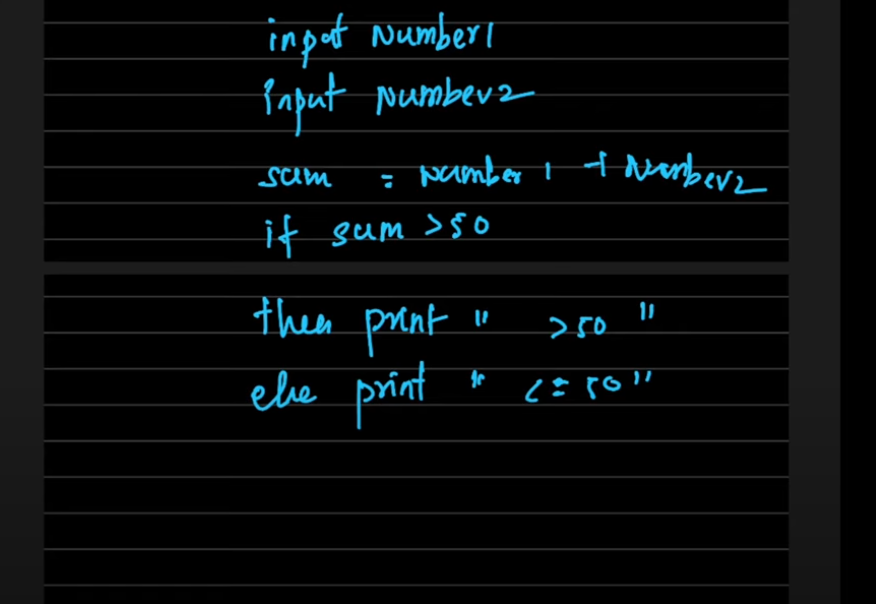 input Number1
input Number2
sum = number 1 + Number2
if sum >50
then print " >50 "
else print " <= 50"